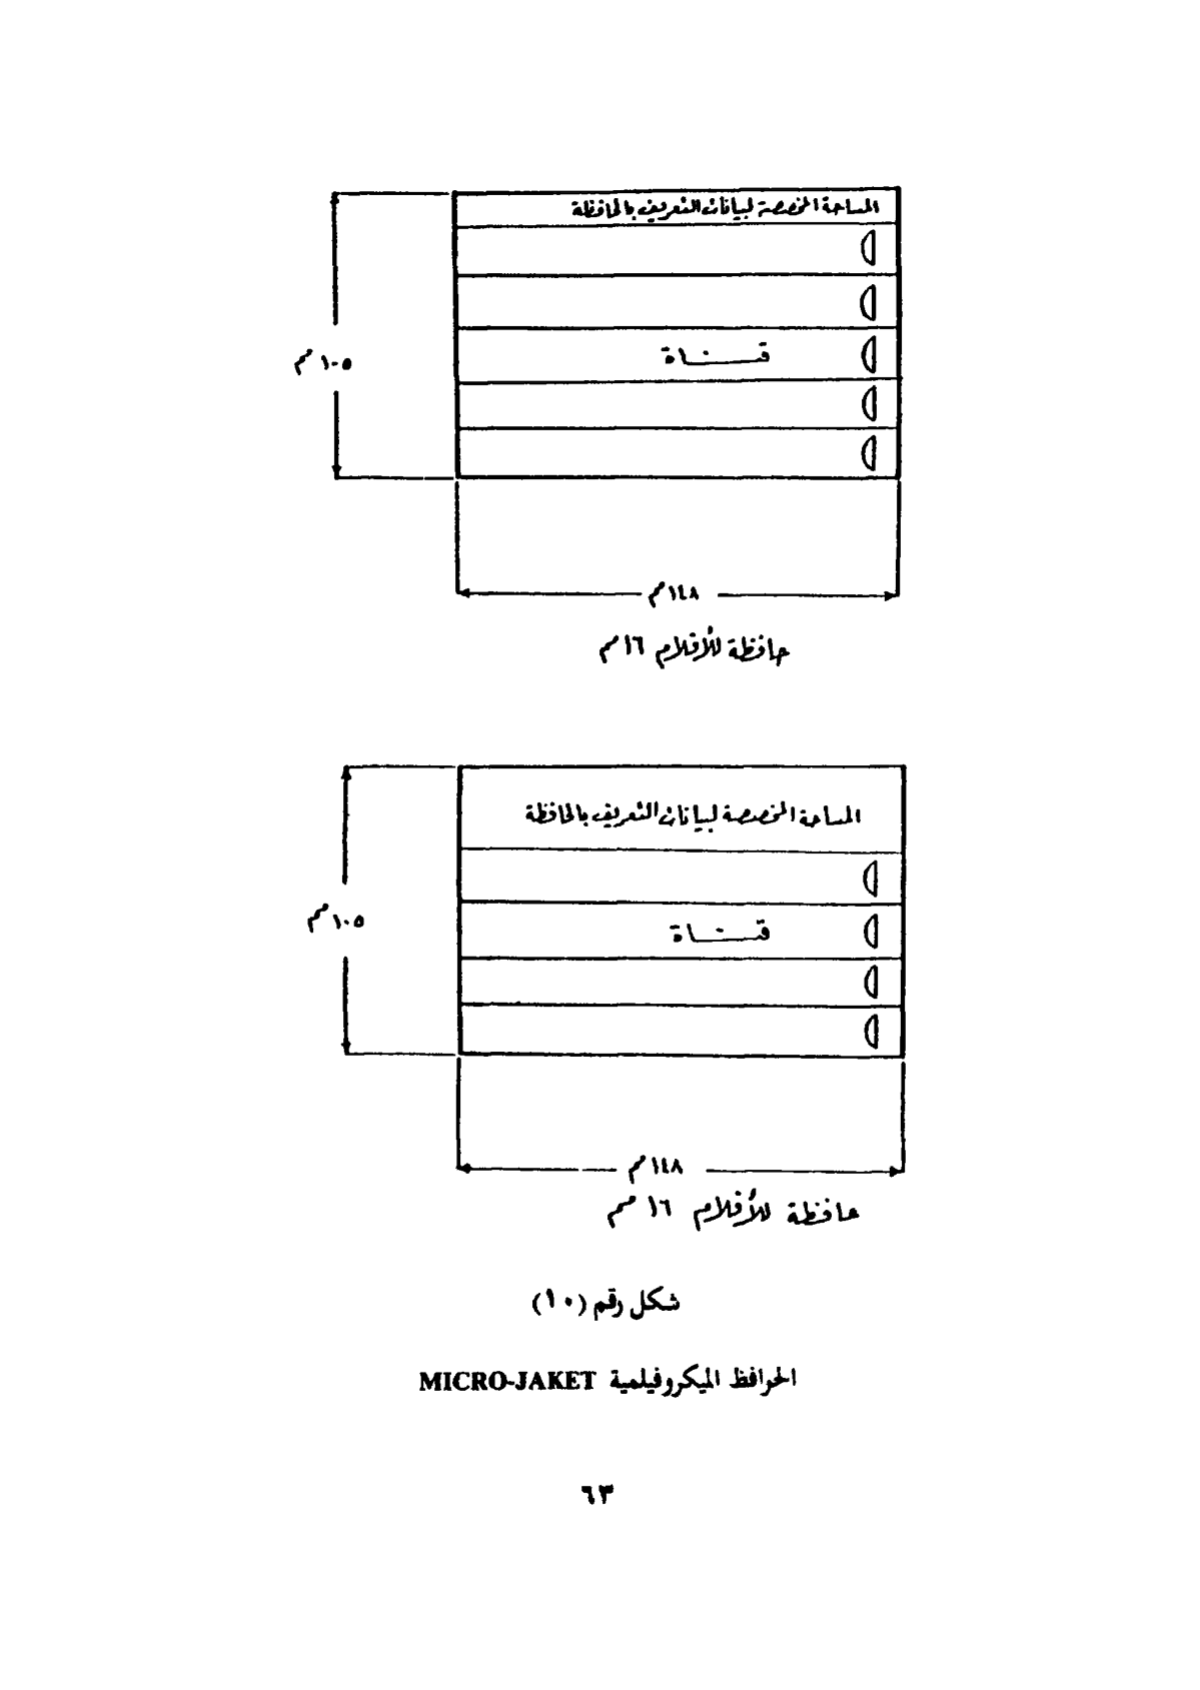 المساحة المخصصة لبيانات التعريف بالحافظة
قناة
١٠٥ مم
١٤٨ مم
حافظة للأفلام ١٦ مم
المساحة المخصصة لبيانات التعريف بالحافظة
قناة
١٠٥ مم
١٤٨ مم
حافظة للأفلام ١٦ مم
شكل رقم (١٠)
الحوافظ الميكروفيلمية MICRO-JAKET
٦٣